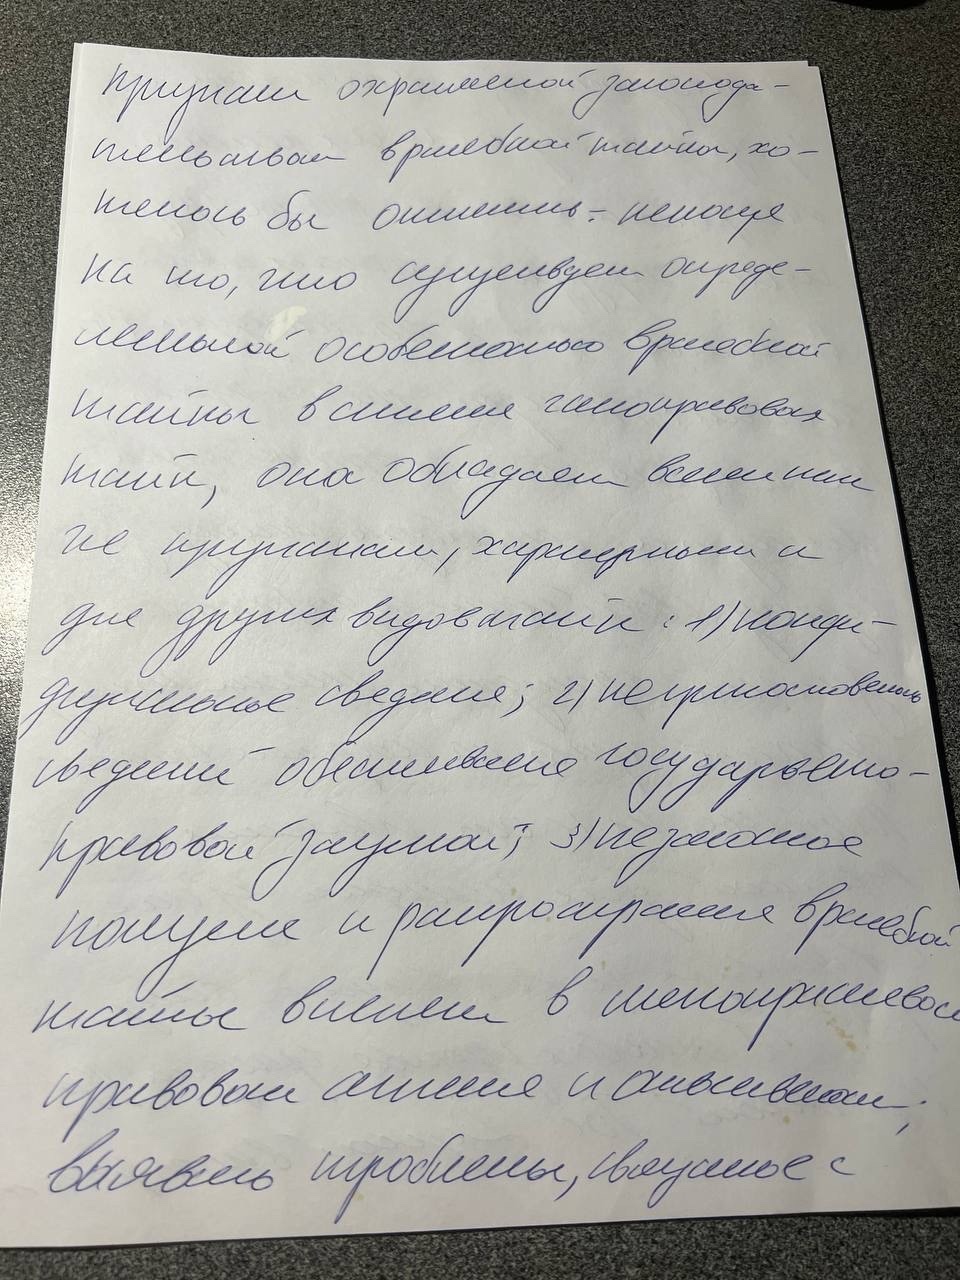 признаки охраняемой законода-
тельством врачебной тайны, хо-
телось бы отметить: несмотря
на то, что существует опреде-
ленной особенностью врачебной
тайны в системе
тайн, она обладает всеми теми
же признаками, характерными и
для других видов тайн: 1)
сведения; 2) неприкосновенность
сведений обеспечивается государственно-
правовой защитой; 3) незаконное
получение и распространение врачебной
тайны влечет в
правовом и
выявить проблемы, связанные с